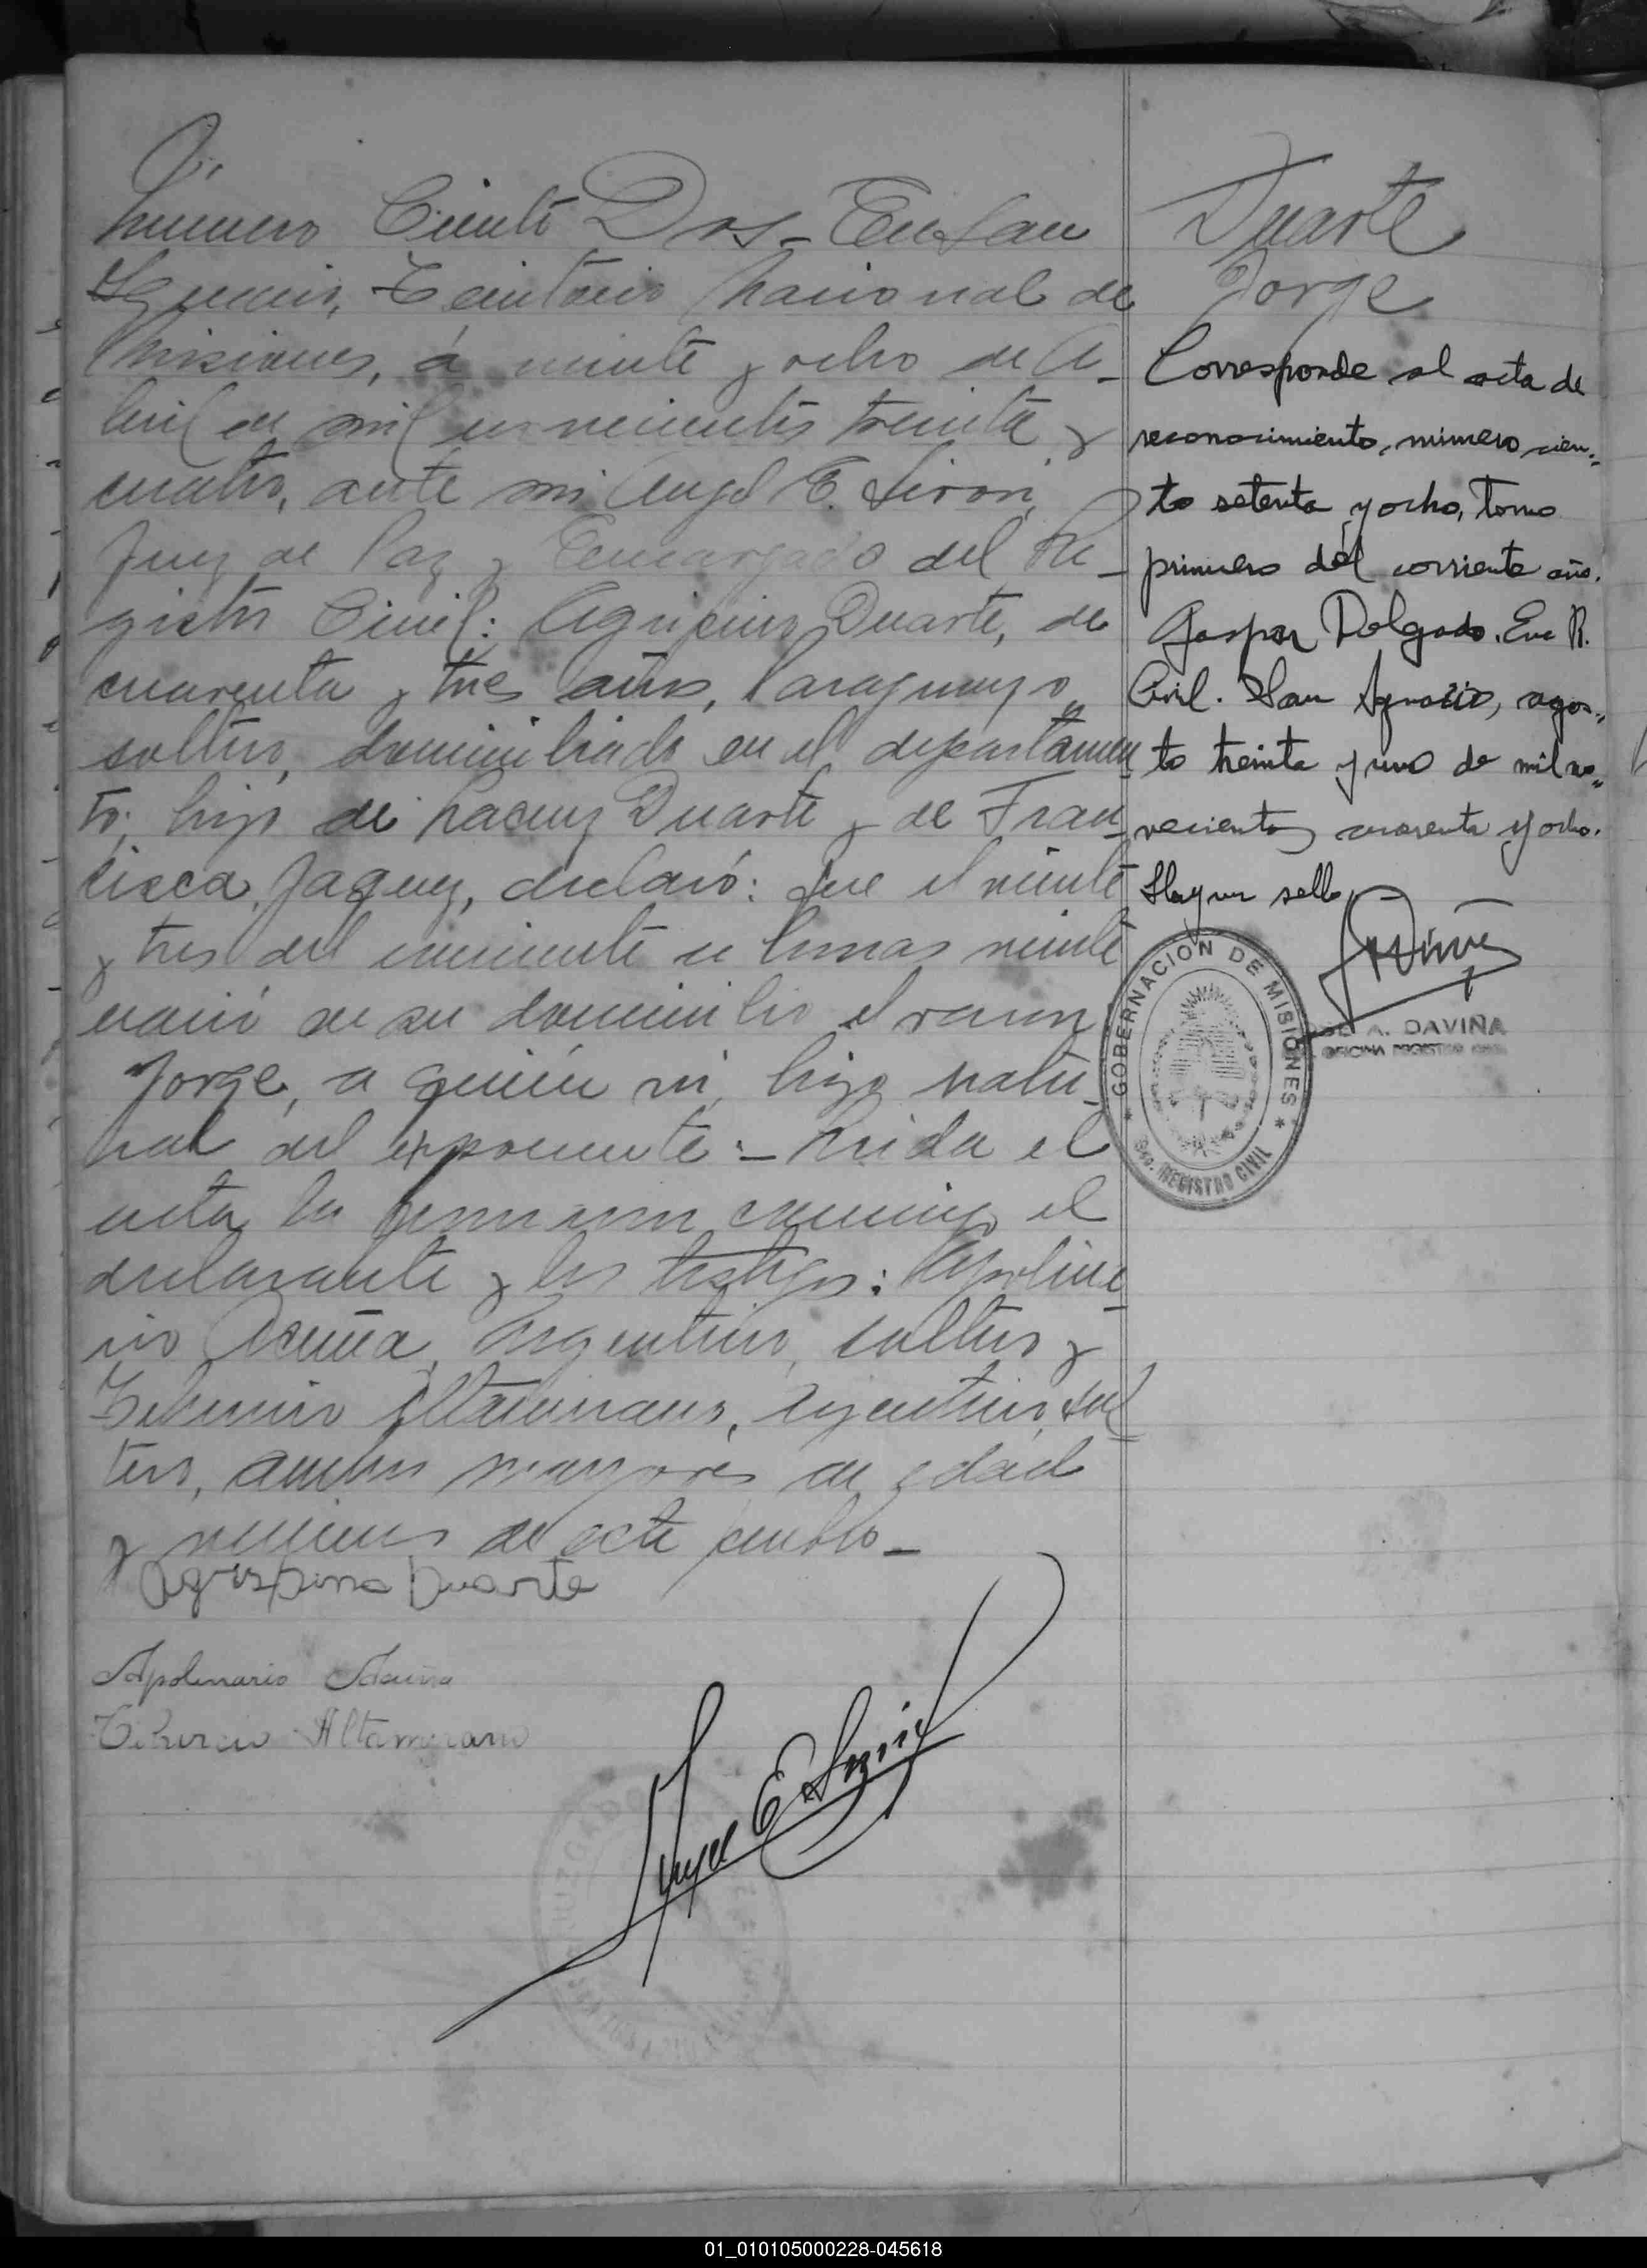 Número Ciento Dos - En San
Ignacio, Territorio Nacional de
Misiones, á veinte y ocho de A-
bril de mil novecientos treinta y
cuatro, ante mi Angel E.
Juez de Paz y Encargado del Re-
gistro Civil: Agripino Duarte, de
cuarenta y tres años, Paraguayo,
soltero, domiciliado en el departamen
to, hijo de Duarte y de Fran-
cisca declaró: Que el veinte
y tres del corriente a horas veinte
nació en su domicilio el varon
Jorge, a quién vi, hijo natu-
ral del exponente:- Leida el
acta, la firmaron conmigo el
declarante y los testigos: Apolina-
rio Acuña, Argentino, soltero y
Altamirano, Argentino, sol-
tero, ambos mayores de edad
y vecinos de este pueblo -
Duarte
Apolinario Acuña
Altamirano
Angel E.
Duarte
Jorge
Corresponde al acta de
reconocimiento, número cien-
to setenta y ocho, Tomo
primero del corriente año.
Gaspar Delgado. Enc R.
Civil. San Ignacio, agos-
to treinta y uno de mil no-
vecientos cuarenta y ocho.
Hay un sello
GOBERNACION DE MISIONES
REGISTRO CIVIL
A. DAVIÑA
OFICINA REGISTRO CIVIL
JUZGADO
01_010105000228-045618